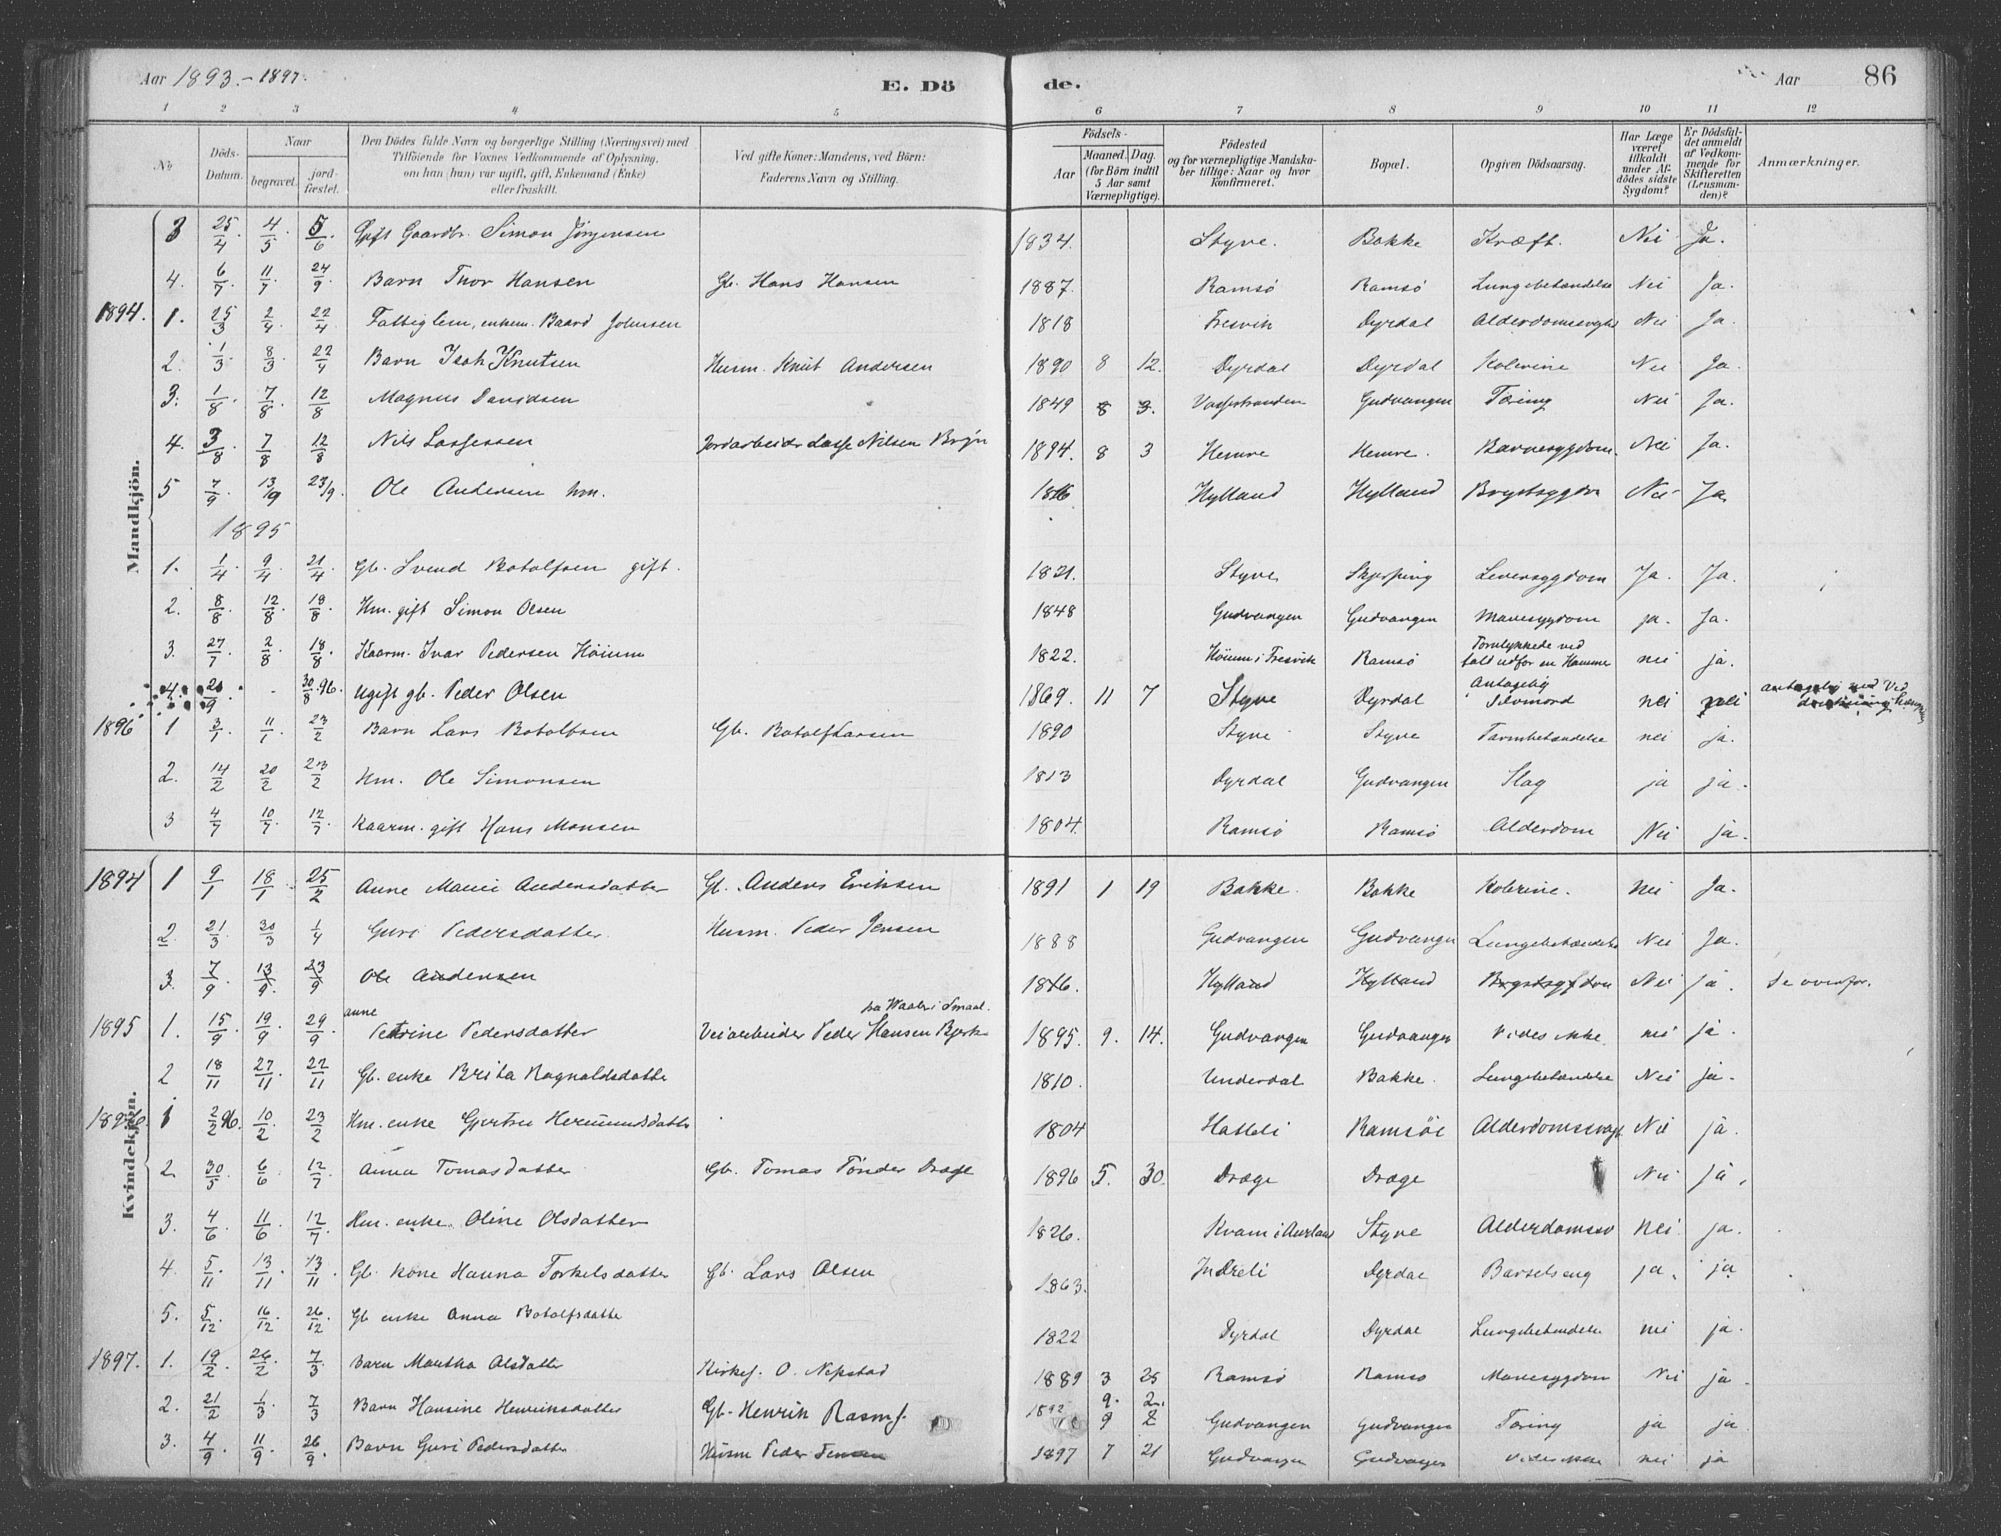 Aar 1893.-1897.
E. Dö
de.
Aar
86
1 2 3 4 5 6 7 8 9 10 11 12
No
Döds-Datum.
Naar
begravet.
jord-fæstet.
Den Dödes fulde Navn og borgerlige Stilling (Næringsvei) med Tilföiende for Voxnes Vedkommende af Oplysning, om han (hun) var ugift, gift, Enkemand (Enke) eller fraskilt.
Ved gifte Koner: Mandens, ved Börn: Faderens Navn og Stilling.
Födsels-
Aar
Maaned. Dag. (for Börn indtil 5 Aar samt Værnepligtige).
Födested og for værnepligtige Mandskaber tillige: Naar og hvor konfirmeret.
Bopæl.
Opgiven Dödsaarsag.
Har Læge været tilkaldt under Afdödes sidste Sygdom?
Er Dödsfaldet anmeldt af Vedkommende for Skifteretten (Lensmanden)?
Anmærkninger.
Mandkjön.
3 25/4. 4/5. 5/6. Gift Gaardbr. Simon Jørgensen 1834. Styve. Bakke Kræft. Nei Ja.
4. 6/7. 11/7. 24/9. Barn Thor Hansen Gb. Hans Hansen 1887. Ramsö Ramsö Lungebetændelse Nei Ja.
1894. 1. 25/3 2/4 22/4 Fattiglem, enkem. Baard Johnsen 1818 Fresvik Dyrdal Alderdomssvagh Nei Ja.
2. 1/3. 8/3 22/4 Barn Isak Knutsen Husm. Knut Andersen 1890 8 12. Dyrdal Dyrdal Kolerine Nei Ja.
3. 1/8. 7/8. 12/8 Magnus Davidsen 1849 8 3. Vossestranden Gudvangen Tæring Nei Ja.
4. 3/8. 7/8 12/8 Nils Lassessen Jordarbeider Lasse Nilsen Bryn 1894. 8 3 Hemre Hemre. Barnesygdom. Nei Ja.
5 7/9. 13/9 23/9. Ole Andersen hm. 1816 Hylland Hylland Brystsygdom Nei Ja
1895
1. 1/4. 9/4. 21/4. Gb. Svend Botolfsen gift. 1821. Styve Skjerping Leversygdom Ja. Ja.
2. 8/8. 12/8. 19/8. Hm. gift Simon Olsen 1848 Gudvangen Gudvangen Mavesygdom ja. Ja.
3. 27/7. 2/8. 18/8. Kaarm. Ivar Pedersen Höium 1822. Höium i Fresvik Ramsö Forulykkede ved fald udfor en Hammer nei ja.
4. 21/9. - 30/8.96. Ugift gb. Peder Olsen 1869. 11 7 Styve Dyrdal Antagelig Selvmord nei nei antagelig ved
1896 1 3/1. 11/1. 23/2 Barn Lars Botolfsen Gb. Botolf Larsen 1890 Styve Styve Tarmbetændelse nei ja.
2. 14/2 20/2 23/2 Hm. Ole Simonsen 1813 Dyrdal Gudvangen Slag ja ja.
3 4/7 10/7. 12/7. Kaarm. gift Hans Monsen 1804. Ramsö Ramsö Alderdom Nei ja.
Kvindekjön.
1894 1 9/1 18/1. 25/2 Anne Marie Andersdatter Gb. Anders Eriksen 1891 1 19 Bakke. Bakke Kolerine. Nei Ja.
2. 21/3. 30/3 1/4 Guri Pedersdatter. Husm. Peder Jensen 1888 Gudvangen Gudvangen Lungebetændelse Nei Ja.
3. 7/9. 13/9. 23/9 Ole Andersen 1816. Hylland Hylland Brystsygdom Nei Ja. Se ovenfor.
fra Waaler i Smaal.
1895 1. 15/9. 19/9. 29/9. anne Petrine Pedersdatter Veiarbeider Peder Hansen Bjerke 1895. 9. 14. Gudvangen Gudvangen Vides ikke. nei ja.
2 18/11. 27/11. 22/11 Gb. enke Brita Ragnaldsdatte 1810. Underdal Bakke. Lungebetændelse Nei ja.
1896 1 2/2 96. 10/2. 23/2 Hm. enke Gjertru Hermundsdatte 1804 Hatleli Ramsöe Alderdomssvagh Nei ja.
2 30/5. 6/6 12/7 Anna Tomasdatter Gb. Tomas Tönder Drage 1896 5. 30. Drage Drage Nei ja,
3. 4/6. 11/6. 12/7. Hm. enke Oline Olsdatter 1826. Kvam i Aurland Styve Alderdomssv Nei ja.
4. 5/11. 13/11. 13/11. Gb. kone Hanna Torkelsdatter Gb. Lars Olsen 1863. Indreli Dyrdal Barselseng ja. ja
5. 5/12. 16/12. 26/12. Gb enke Anna Botolfsdatte 1822 Dyrdal Dyrdal Lungebetændelse nei ja.
1897. 1. 19/2. 26/2. 7/3 Barn Martha Olsdatter Kirkes. O. Nepstad 1889 3 25 Ramsö Ramsö Mavesygdom Nei ja.
2. 21/2. 1/3. 7/3 Barn Hansine Henriksdatter Gb. Henrik Rasms. 1892 9. 2. 9 2 Gudvangen Gudvangen Tæring ja ja.
3. 4/9. 11/9. 26/9. Barn Guri Pedersdatter Husm Peder Jensen 1897 7 21 Gudvangen Gudvangen Vides ikke nei ja